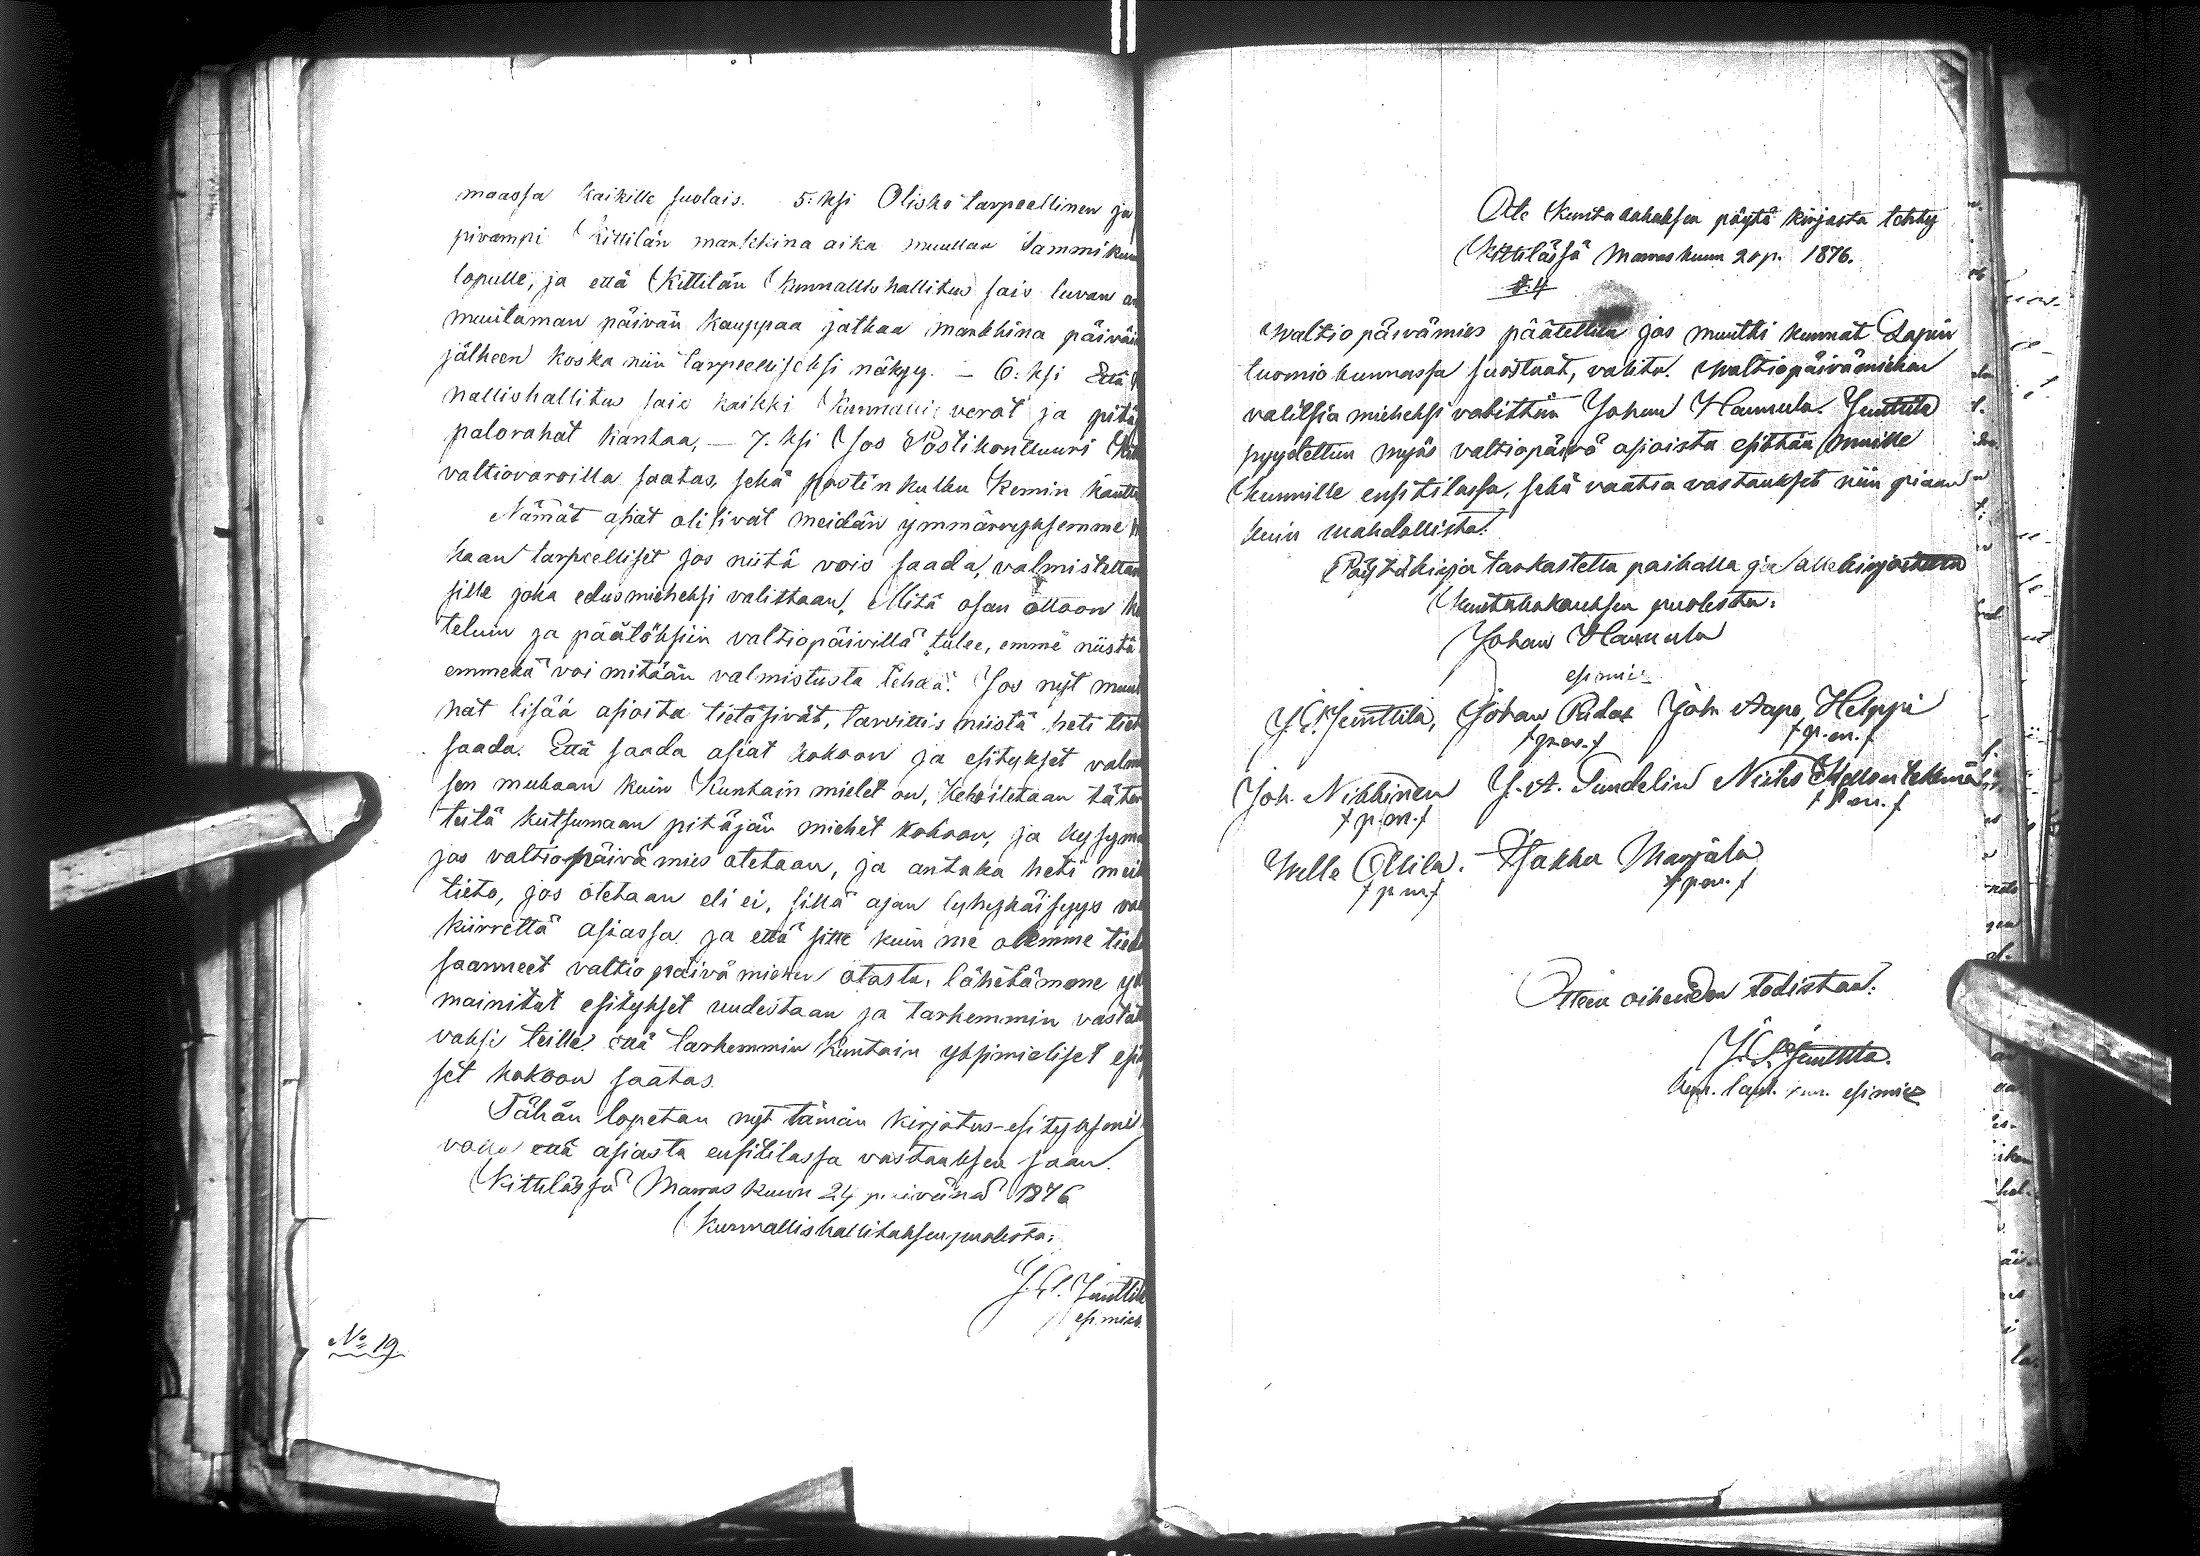 maassa kaikille suolais. 5:ksi Olisko tarpeellinen ja
pirempi Kittilän markkina aika muuttaa Tammikuu
lopulle, ja että Kittilän Kunnallishallitus sais luvan
muutaman päivän kauppaa jatkaa markkina päiväin
jälkeen koska niin tarpeelliseksi näkyy. — 6:ksi Että
nallishallitus sais kaikki Kunnallis verot ja
palorahat kantaa, — 7.ksi Jos Postikonttuuri
valtiovaroilla saatas, sekä postin kulku Kemin kautta
Nämät asiat olisivat meidän ymmärryksemme
kaan tarpeelliset jos niitä vois saada, valmistettan
sille joka edusmieheksi valittaan, Mitä osan ottoon
teluin ja päätöksiin valtiopäivillä tulee, emme niistä
emmekä voi mitään valmistusta tehdä. Jos nyt muut
nat lisää asioita tietäsivät, tarvittis niistä heti tieto
saada. Että saada asiat kokoon ja esitykset
sen mukaan kuin Kuntain mielet on, Kehoitetaan täten
teitä kutsumaan pitäjän miehet kokoon, ja kysymä
jos valtiopäivämies otetaan, ja antaka heti meille
tieto, jos otetaan eli ei, sillä ajan lyhykäisyys
kiirrettä asiassa ja että sitte kuin me olemme
saanneet valtiopäivämiehen otosta, lähetämme
mainitut esitykset uudestaan ja tarkemmin
vaksi teille että tarkemmin Kuntain yksimieliset
set kokoon saatas.
Tähän lopetan nyt tämän kirjotus-esitykseni
että asiasta ensitilassa vastauksen saan.
Kittilässä Marras kuun 24 päivänä 1876
Kunnallishallituksen puolesta:
J. E. Junttila
esimies
No 19.
Ote Kuntakokouksen pöytä kirjasta tehty
Kittilässä Marraskuun 20 p. 1876.
§. 4
Waltiopäivämies päätettiin jos muutki kunnat Lapin
tuomiokunnassa suostuat, valita. Waltiopäivämiehen
valitsia mieheksi valittiin Johan Hannula. Junttila
pyydettiin myös valtiopäivä asioista esittään muille
kunnille ensitilassa, sekä vaatia vastaukset niin pian
kuin mahdollista.
Pöytäkirja tarkastettu paikalla ja allekirjoitettu
Kuntakokouksen puolesta:
Johan Hannula
esimies
J. E. Junttila, Johan Ridas Joh. Aapo Helppi
Joh. Nikkinen J. A. Sundelin Niiles
Wille Ollila. Jaakko Marjala
Otteen oikeuden todistaa:
J. E. Junttila.
esimies